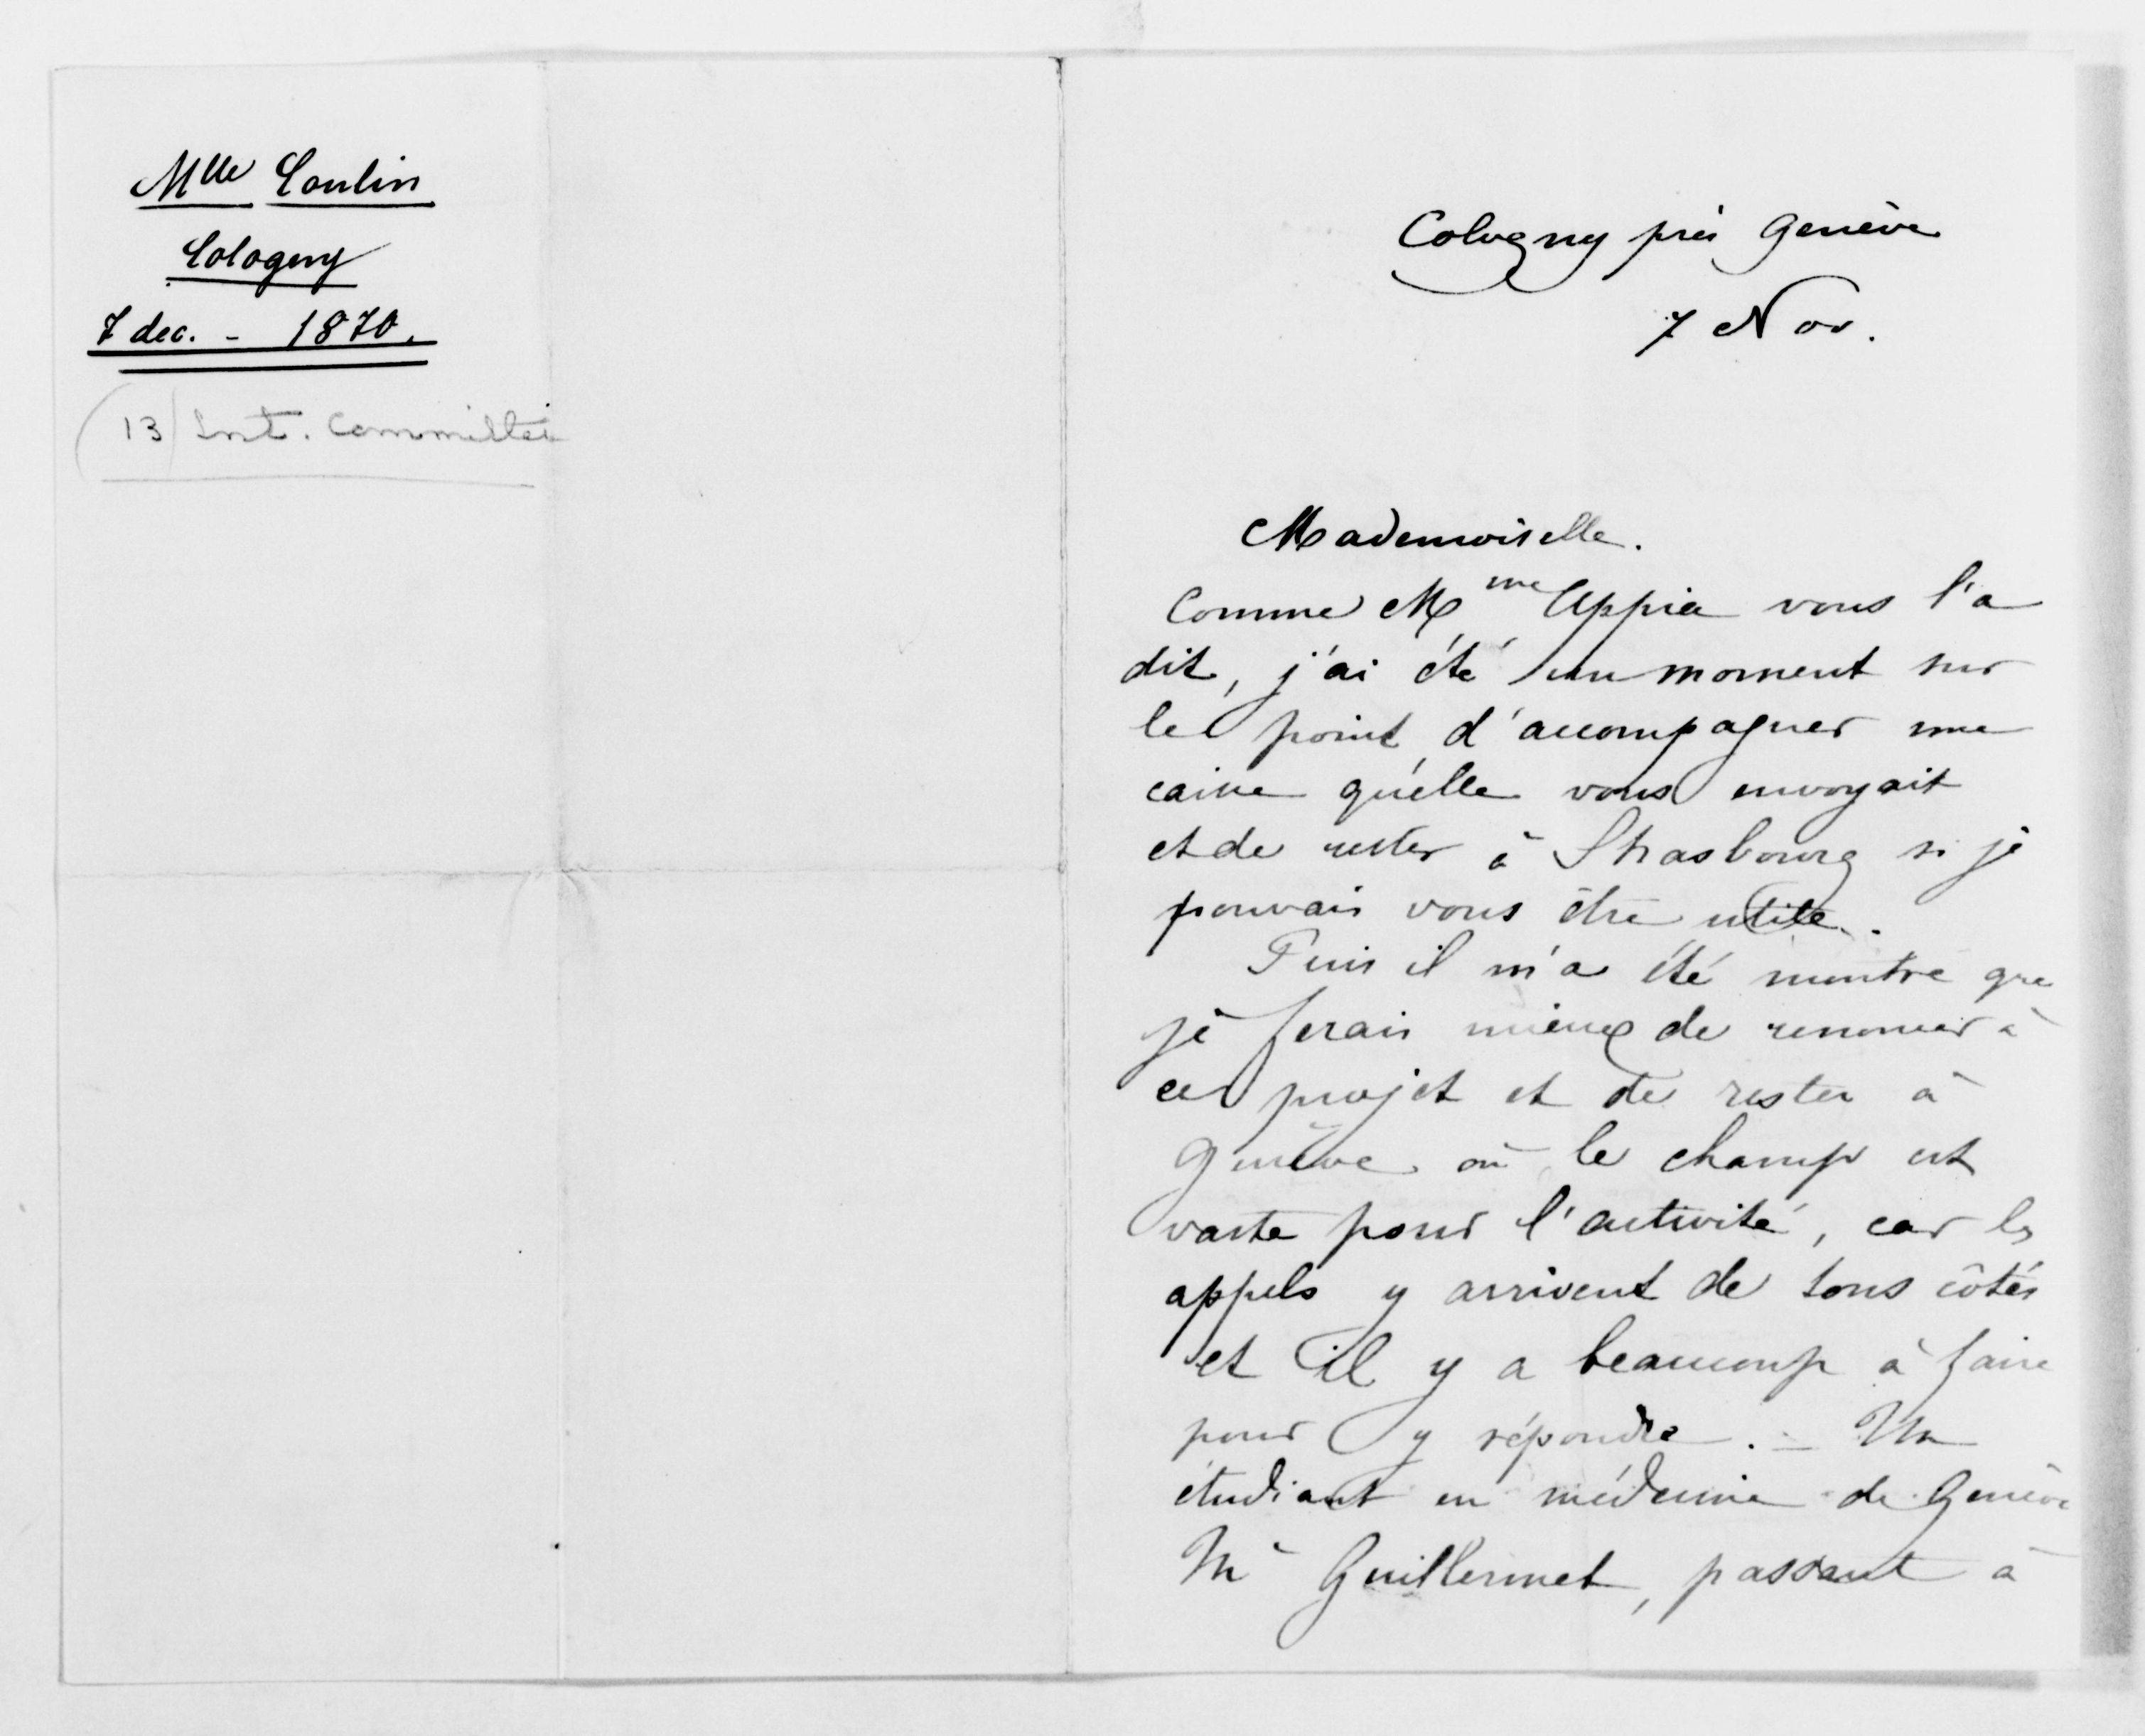 Mlle Coulin
Cologny
7 dec. - 1870.
(13) Int. Committee
Cologny près Genève
7 Nov.
Mademoiselle.
Comme Mme Appia vous l'a
dit, j'ai été un moment sur
le point d'accompagner une
caisse qu'elle vous envoyait
et de rester à Strasbourg si je
pouvais vous être utile.
Puis il m'a été montré que
je ferais mieux de renoncer à
ce projet et de rester à
Genève où le champ est
vaste pour l'activité, car les
appels y arrivent de tous côtés
et il y a beaucoup à faire
pour y répondre. - Un
étudiant en médecine de Genève
Mr Guillermet, passant à